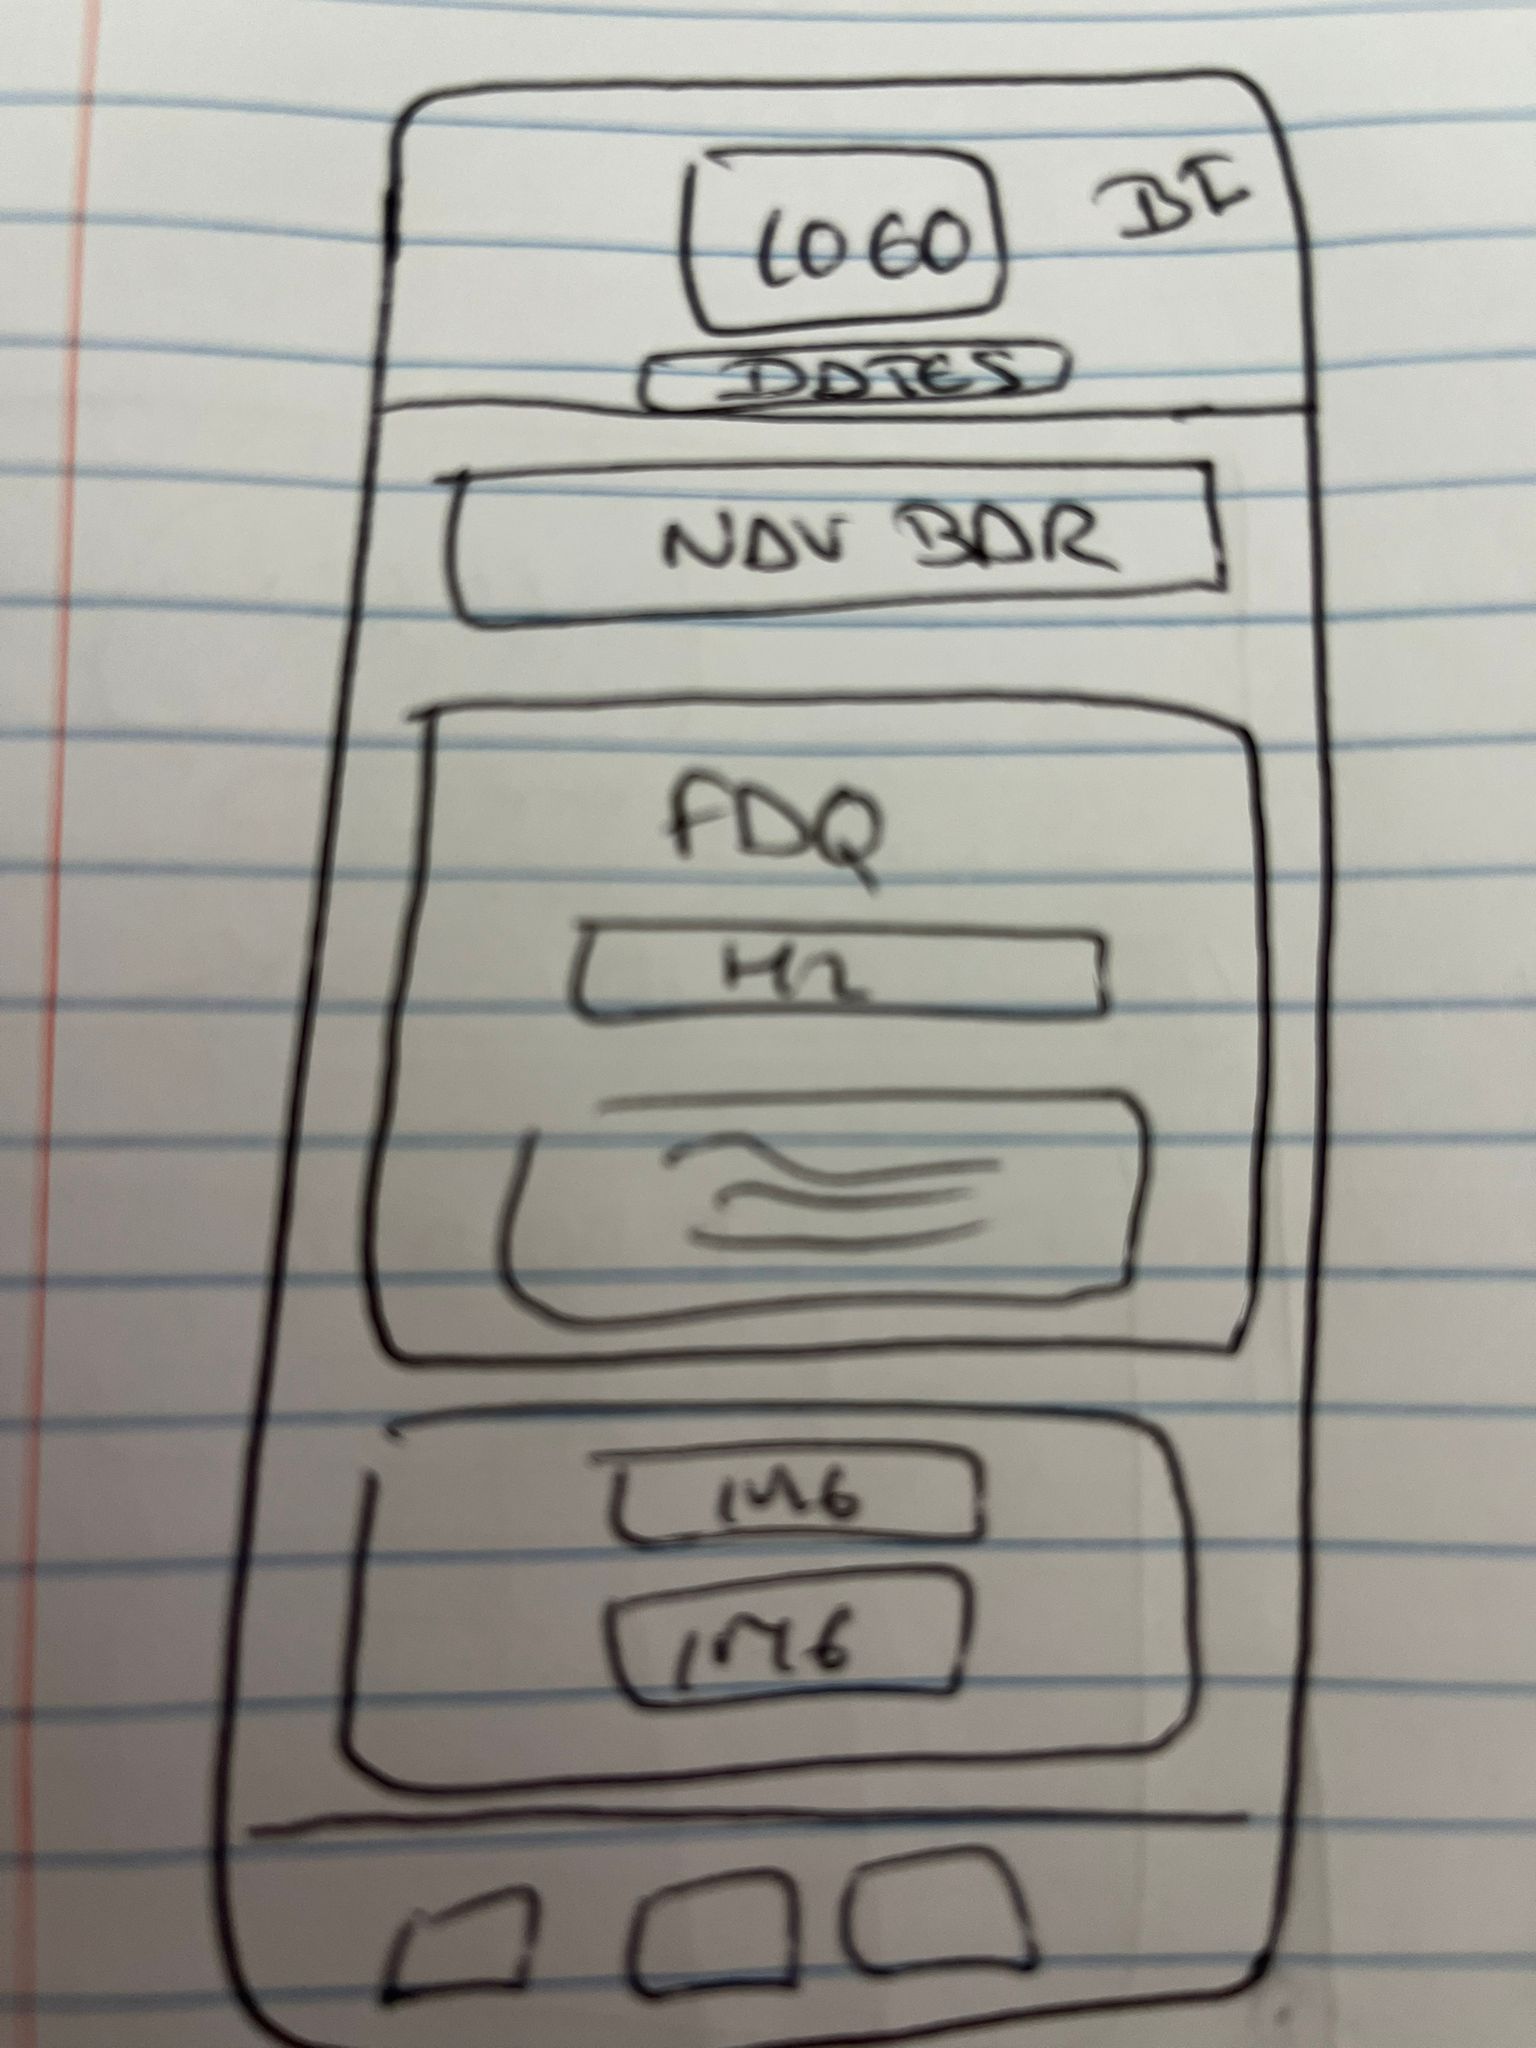 LOGO
BI
DATES
NAV BAR
FAQ
H2
IMG
IMG